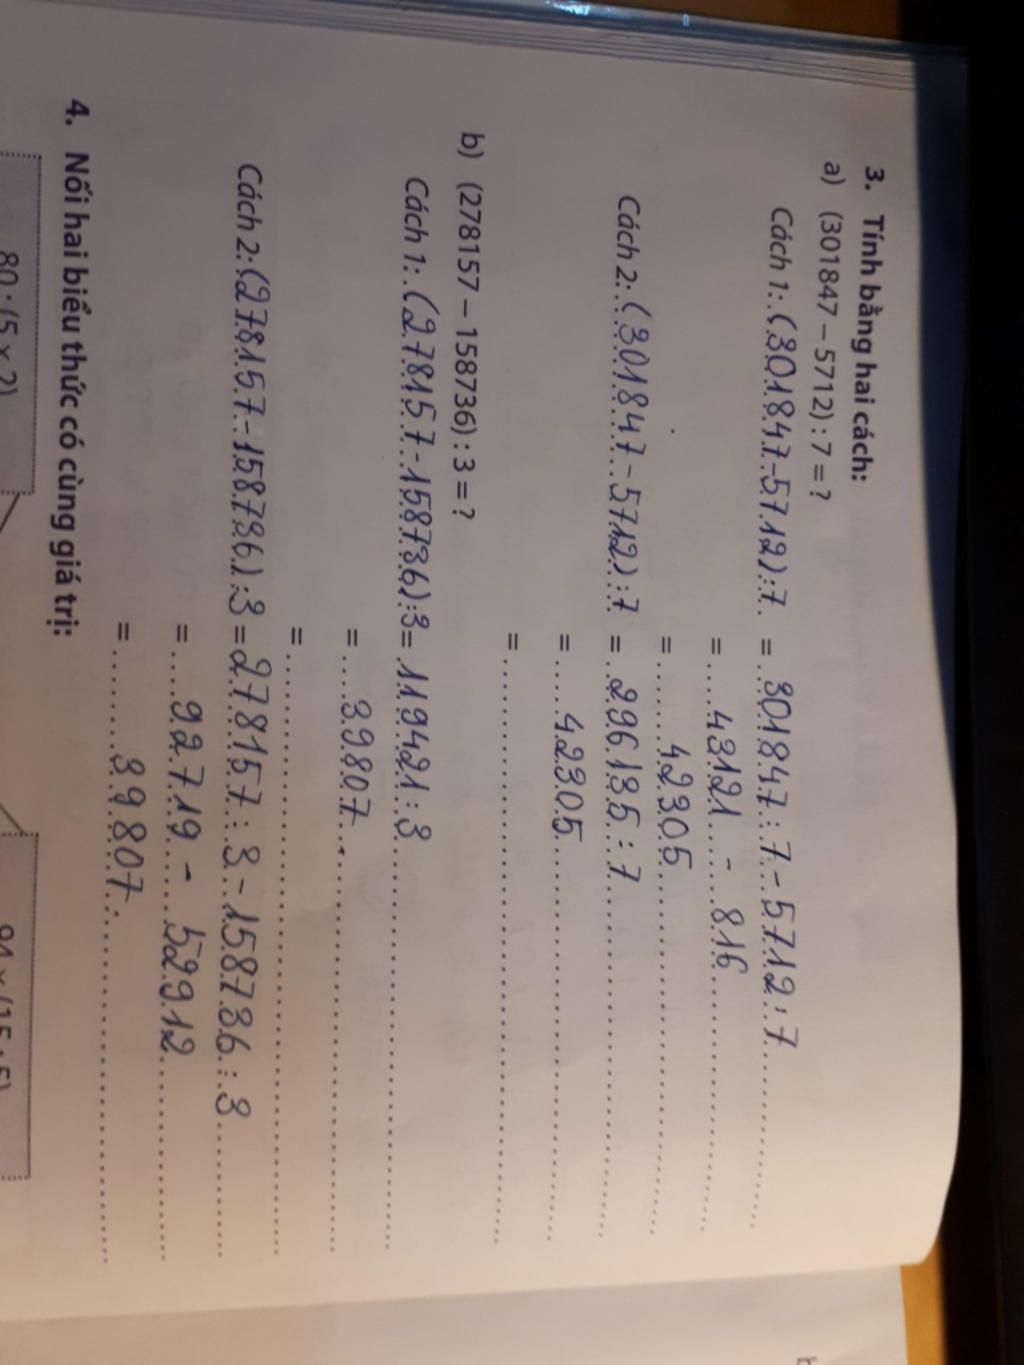 3. Tính bằng hai cách:
a) (301847 – 5712) : 7 = ?
Cách 1: (301847-5712):7 = 301847 : 7 - 5712 : 7
= 43121 - 816
= 42305
Cách 2: (301847-5712):7 = 296135 : 7
= 42305
=
b) (278157 – 158736) : 3 = ?
Cách 1: (278157-158736):3 = 119421 : 3
= 39807
=
Cách 2: (278157-158736):3 = 278157 : 3 - 158736 : 3
= 92719 - 52912
= 39807
4. Nối hai biểu thức có cùng giá trị:
80 : (5 x 2)